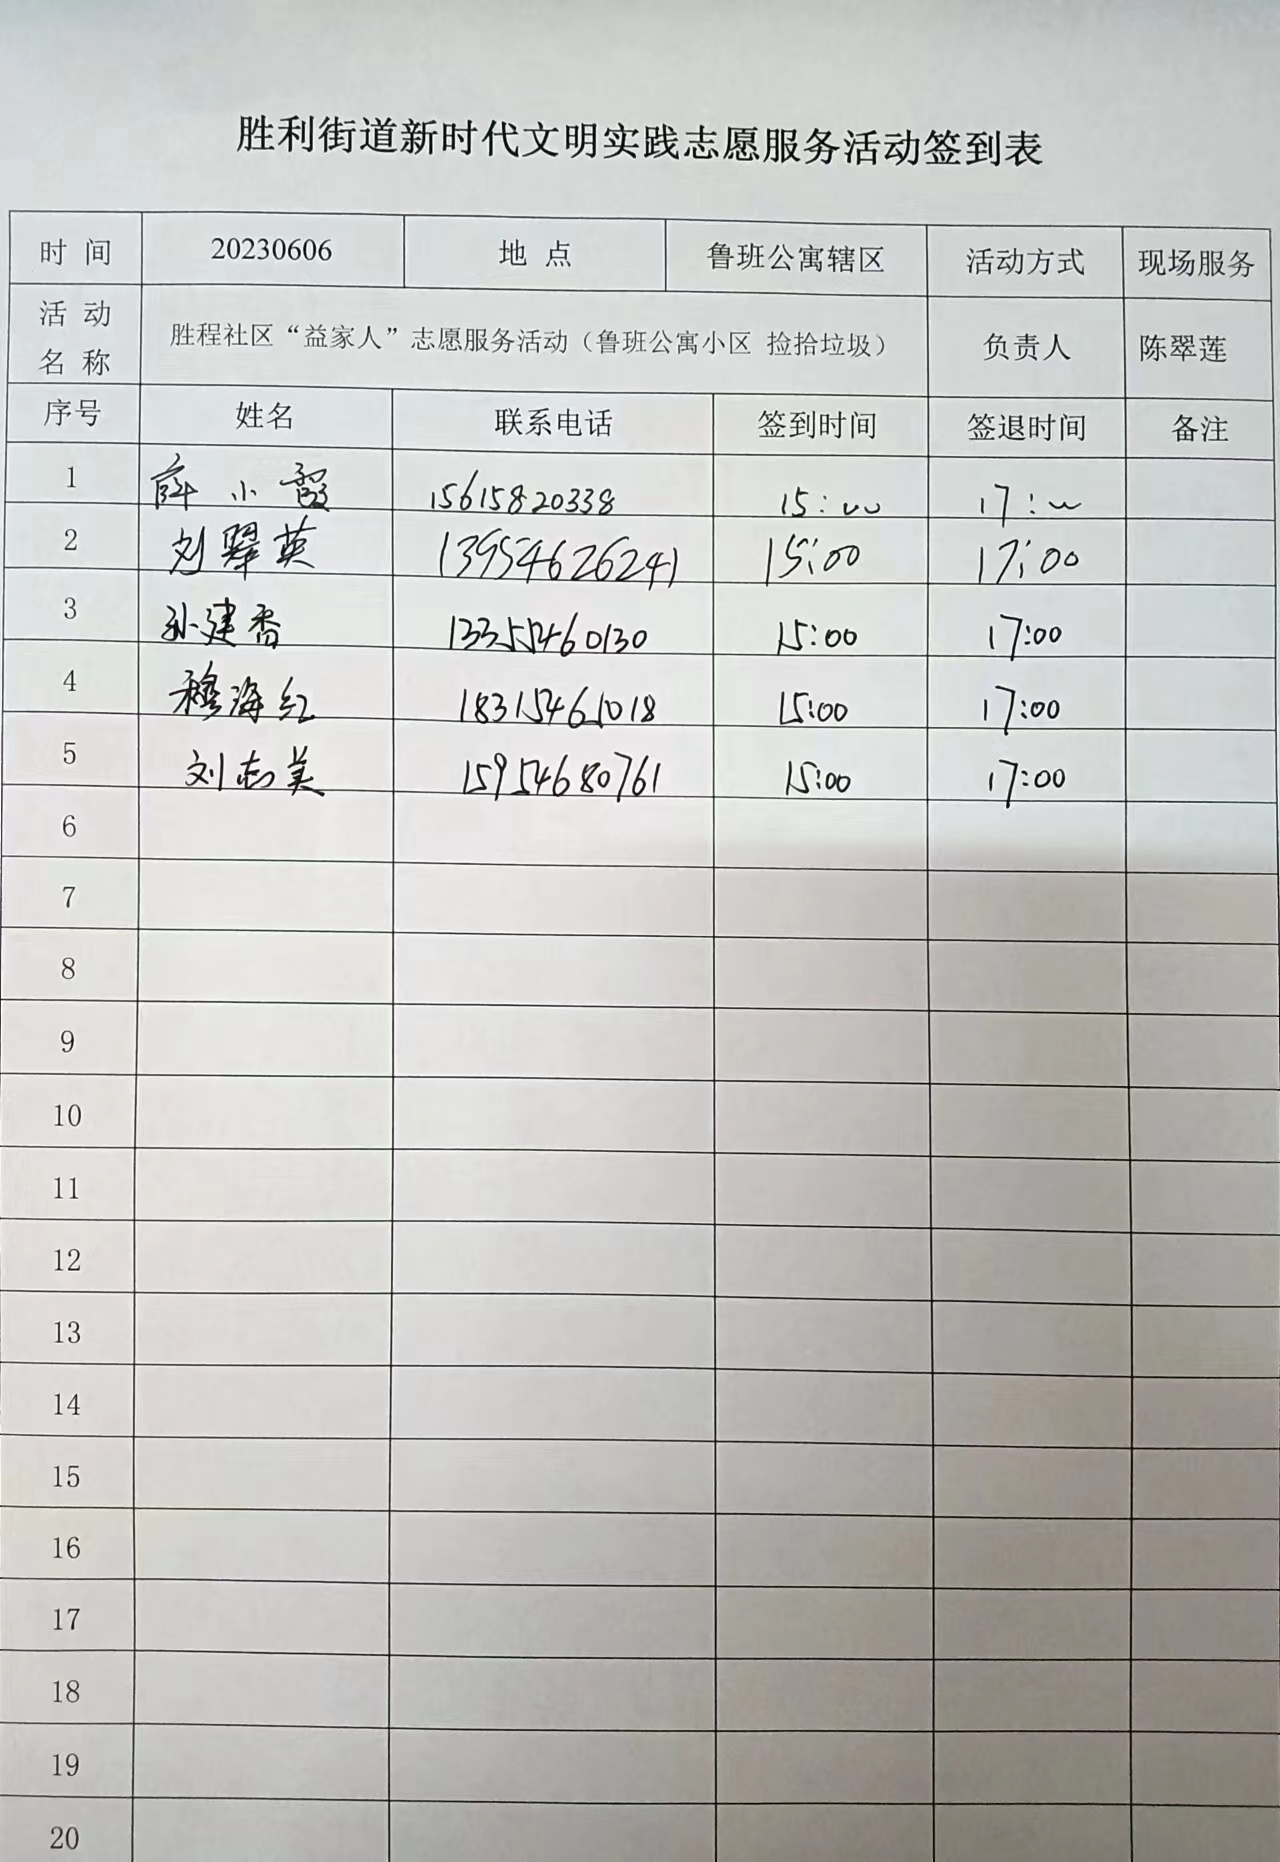 胜利街道新时代文明实践志愿服务活动签到表
时 间 20230606 地 点 鲁班公寓辖区 活动方式 现场服务
活 动 名 称 胜程社区“益家人”志愿服务活动（鲁班公寓小区 捡拾垃圾） 负责人 陈翠莲
序号 姓名 联系电话 签到时间 签退时间 备注
1 薛小霞 15615820338 15:00 17:00
2 刘翠英 13954626241 15:00 17:00
3 孙建香 13355460130 15:00 17:00
4 穆海红 18315461018 15:00 17:00
5 刘志美 15954680761 15:00 17:00
6
7
8
9
10
11
12
13
14
15
16
17
18
19
20